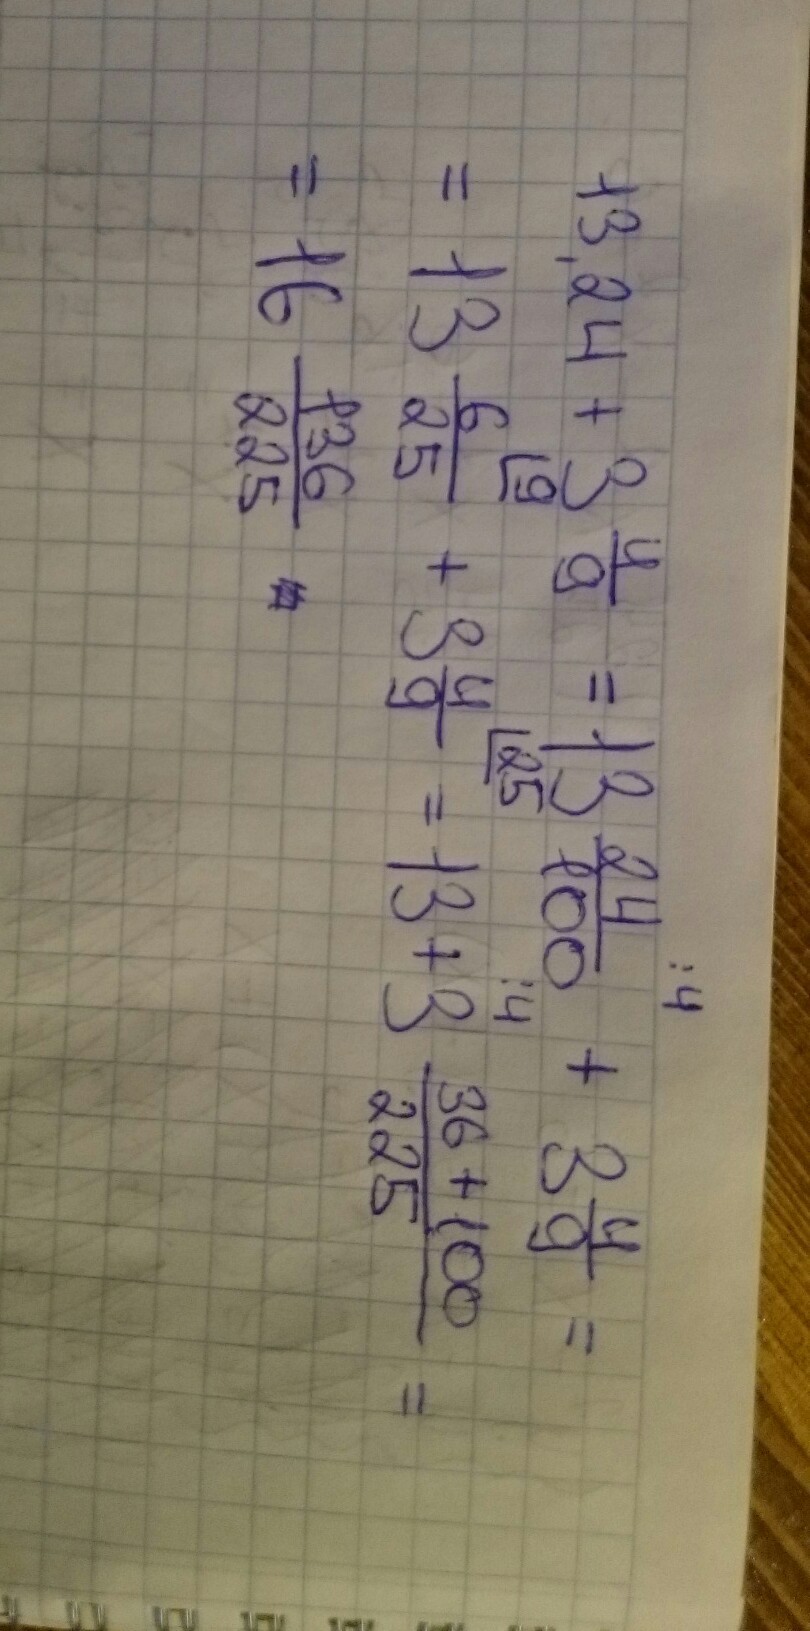 13,24 + 3 4/9 = 13 24/100 :4 + 3 4/9 = :4
= 13 6/25 ⌊9 + 3 4/9 ⌊25 = 13 + 3 36 + 100/225 =
= 16 136/225